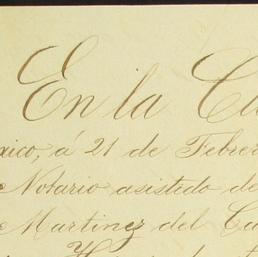 En la Ciu
xico, á 21 de Febrer
Notario asistido de
Martinez del Ca